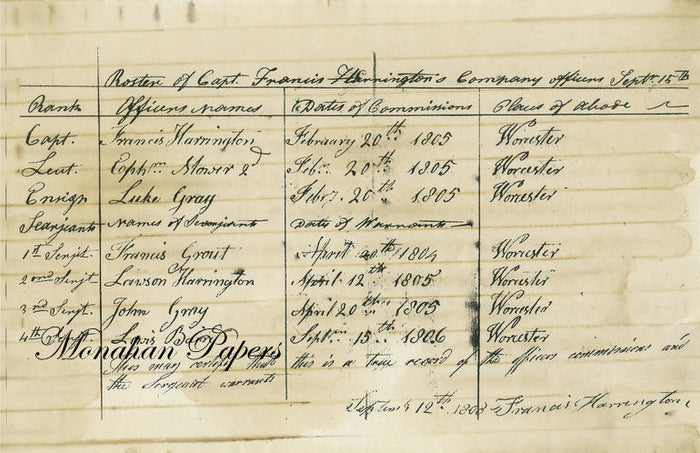 Roster of Capt. Francis Harrington's Company officers Septr. 15th
Rank Officers Names Dates of Commissions Places of Abode
Capt. Francis Harrington February 20th 1805 Worcester
Leut. Ephm Mower 2d Feby. 20th 1805 Worcester
Ensign Luke Gray Feby. 20th 1805 Worcester
Searjeants Names of Searjeants Dates of Warrants
1st Serjt. Francis Grout April 20th 1804 Worcester
2nd Serjt Lawson Harrington April 12th 1805 Worcester
3rd Serjt. John Gray April 20th 1805 Worcester
4th Serjt. Lewis Sept 15th 1806 Worcester
Monahan Papers
this may certify that this is a true record of the officers commissions and
the Sergeant warrants
12th 1808 Francis Harrington